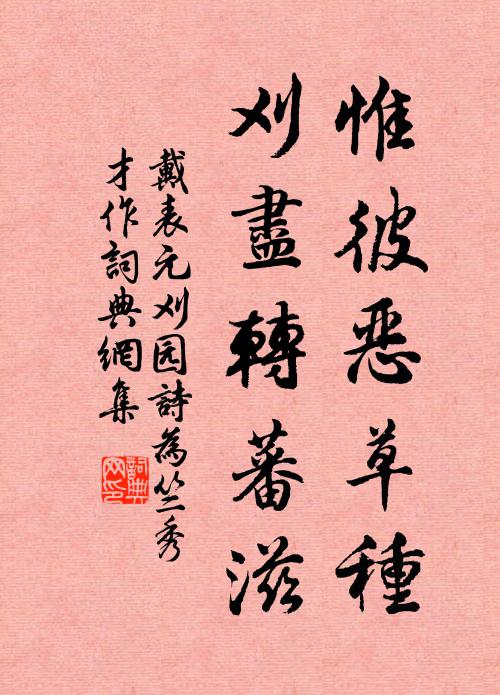 惟彼恶草種
刈盡轉蕃滋
戴表元刈园詩為竺秀
才作詞典網集
詞典网印